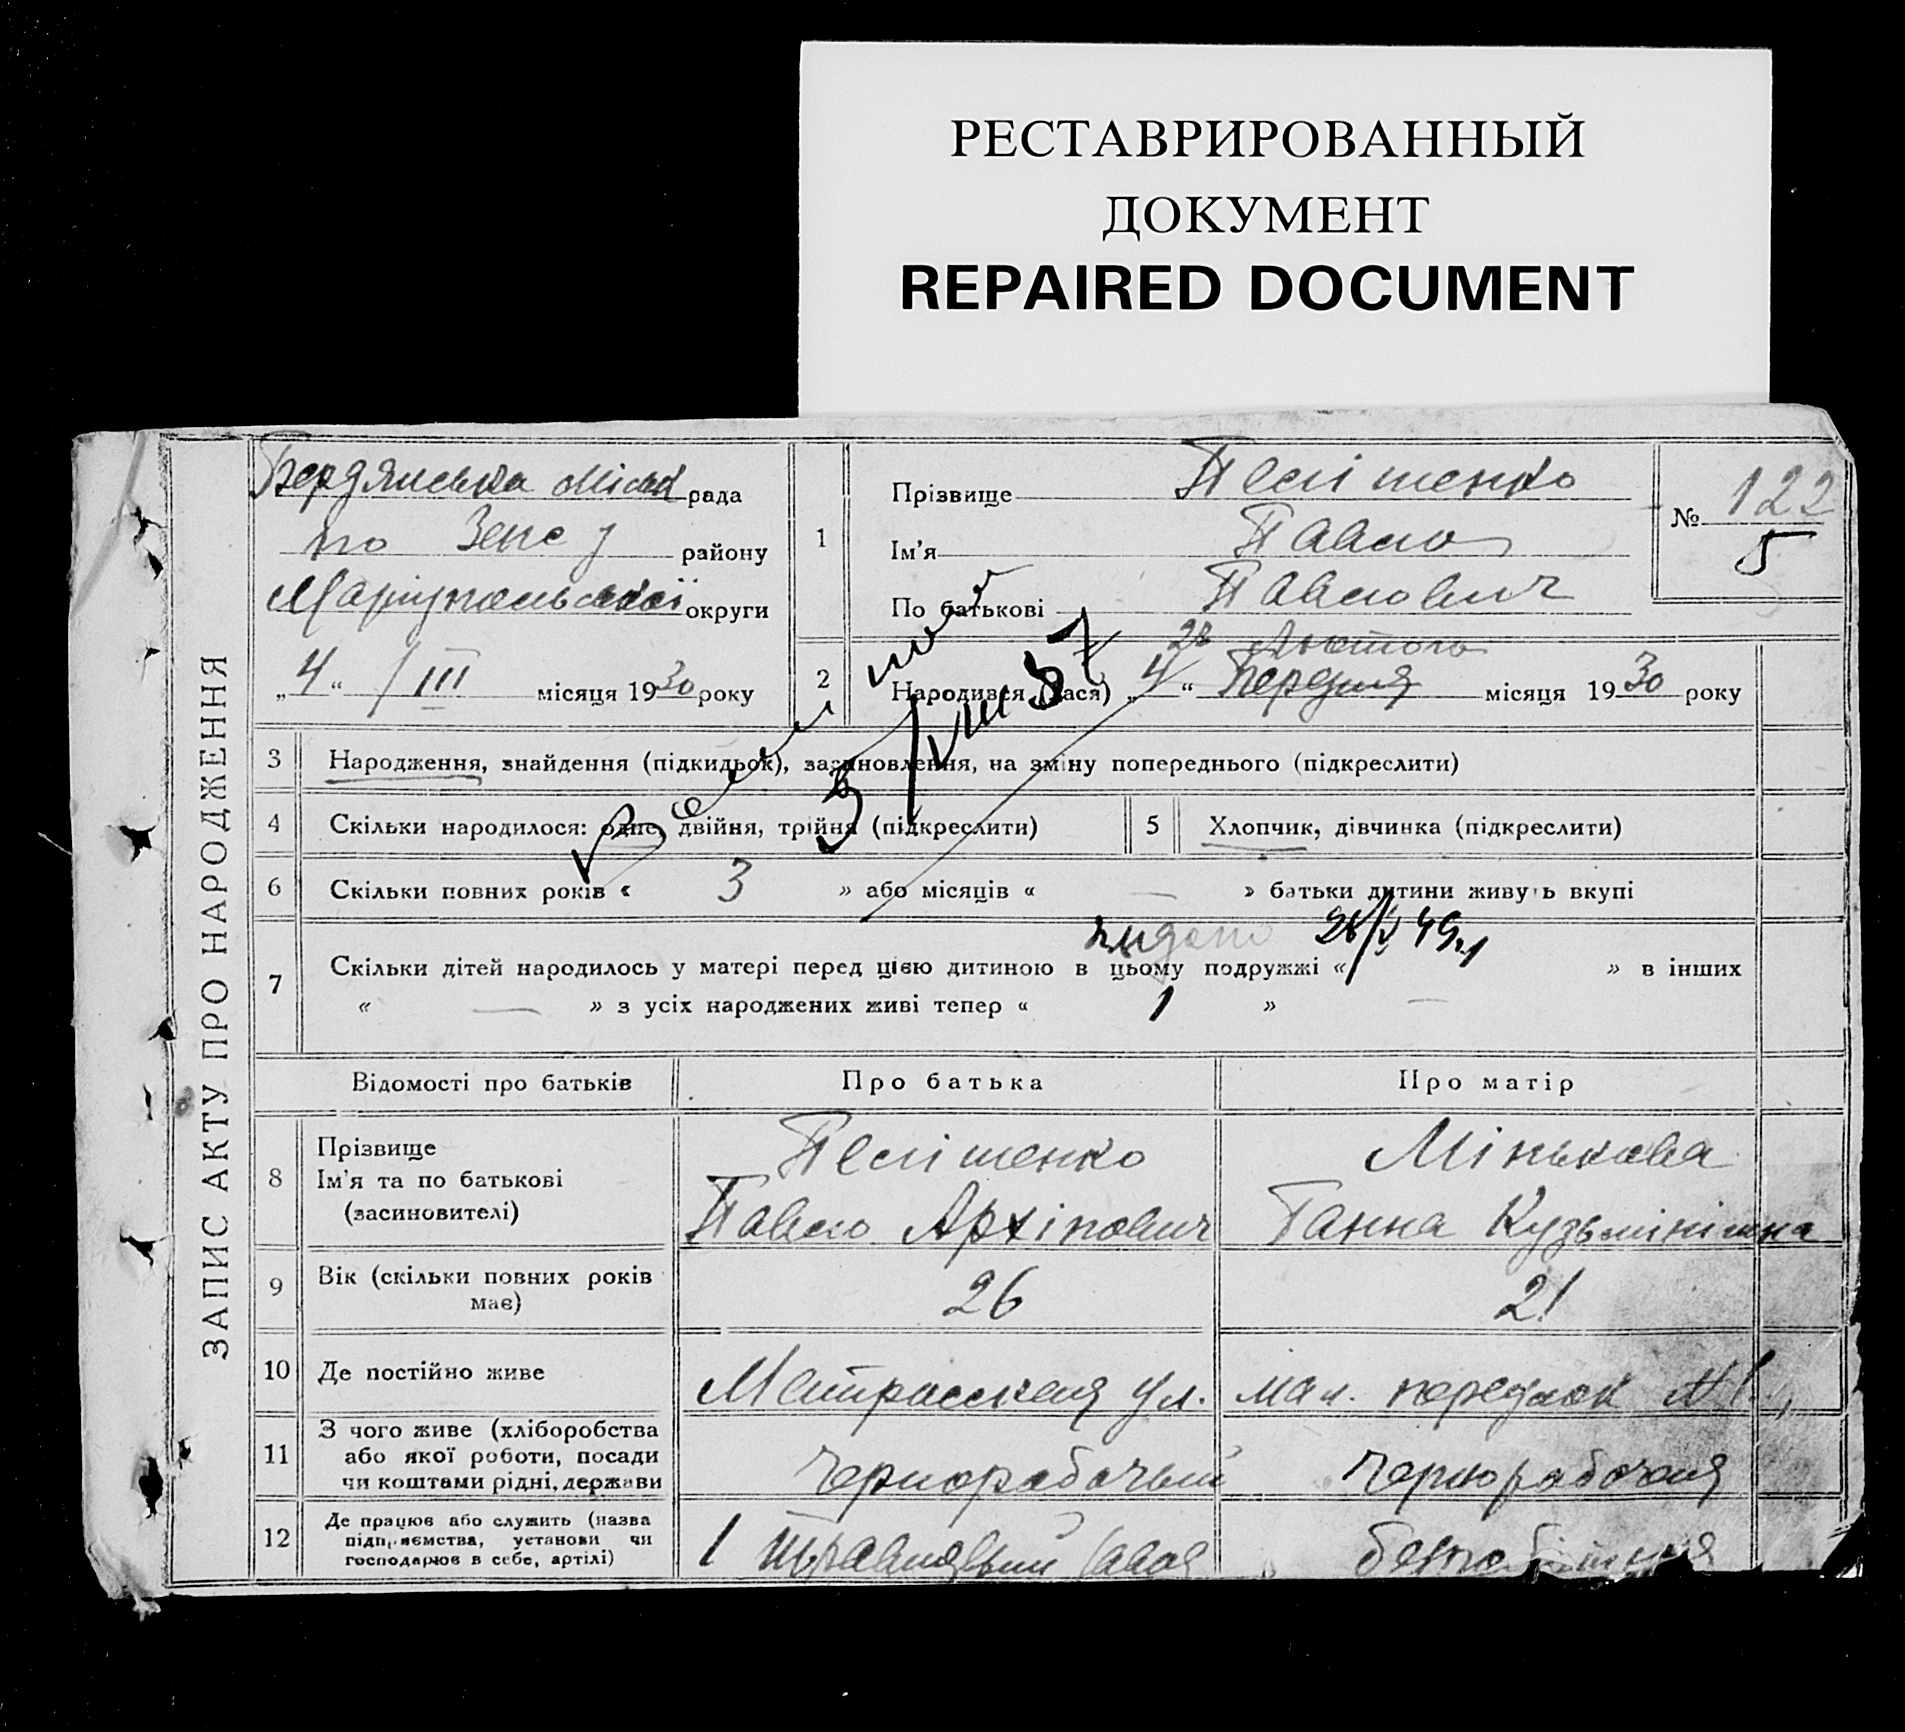 РЕСТАВРИРОВАННЫЙ
ДОКУМЕНТ
REPAIRED DOCUMENT
ЗАПИС АКТУ ПРО НАРОДЖЕННЯ
Бердянська Міськ рада
по району
Маріупольської округи
„4“ / III місяця 1930 року
1
Прізвище
Ім'я Павло
По батькові Павлович
№ 122
5
28 Лютого
2 Народився (лася) „4“ Березня місяця 1930 року
3 Народження, знайдення (підкидьок), засиновлення, на зміну попереднього (підкреслити)
4 Скільки народилося: одне, двійня, трійня (підкреслити)
5 Хлопчик, дівчинка (підкреслити)
6 Скільки повних років « 3 » або місяців « — » батьки дитини живуть вкупі
7 Скільки дітей народилось у матері перед цією дитиною в цьому подружжі « 1 » в інших
« — » з усіх народжених живі тепер « 1 » —
Відомості про батьків Про батька Про матір
8 Прізвище
Ім'я та по батькові
(засиновителі)
Мінькова
Павло Архіпович Ганна Кузьмінішна
9 Вік (скільки повних років має) 26 21
10 Де постійно живе ул. переулок №
11 З чого живе (хліборобства
або якої роботи, посади
чи коштами рідні, держави
Чернорабочый Чернорабочая
12 Де працює або служить (назва
підприємства, установи чи
господарює в себе, артілі)
1